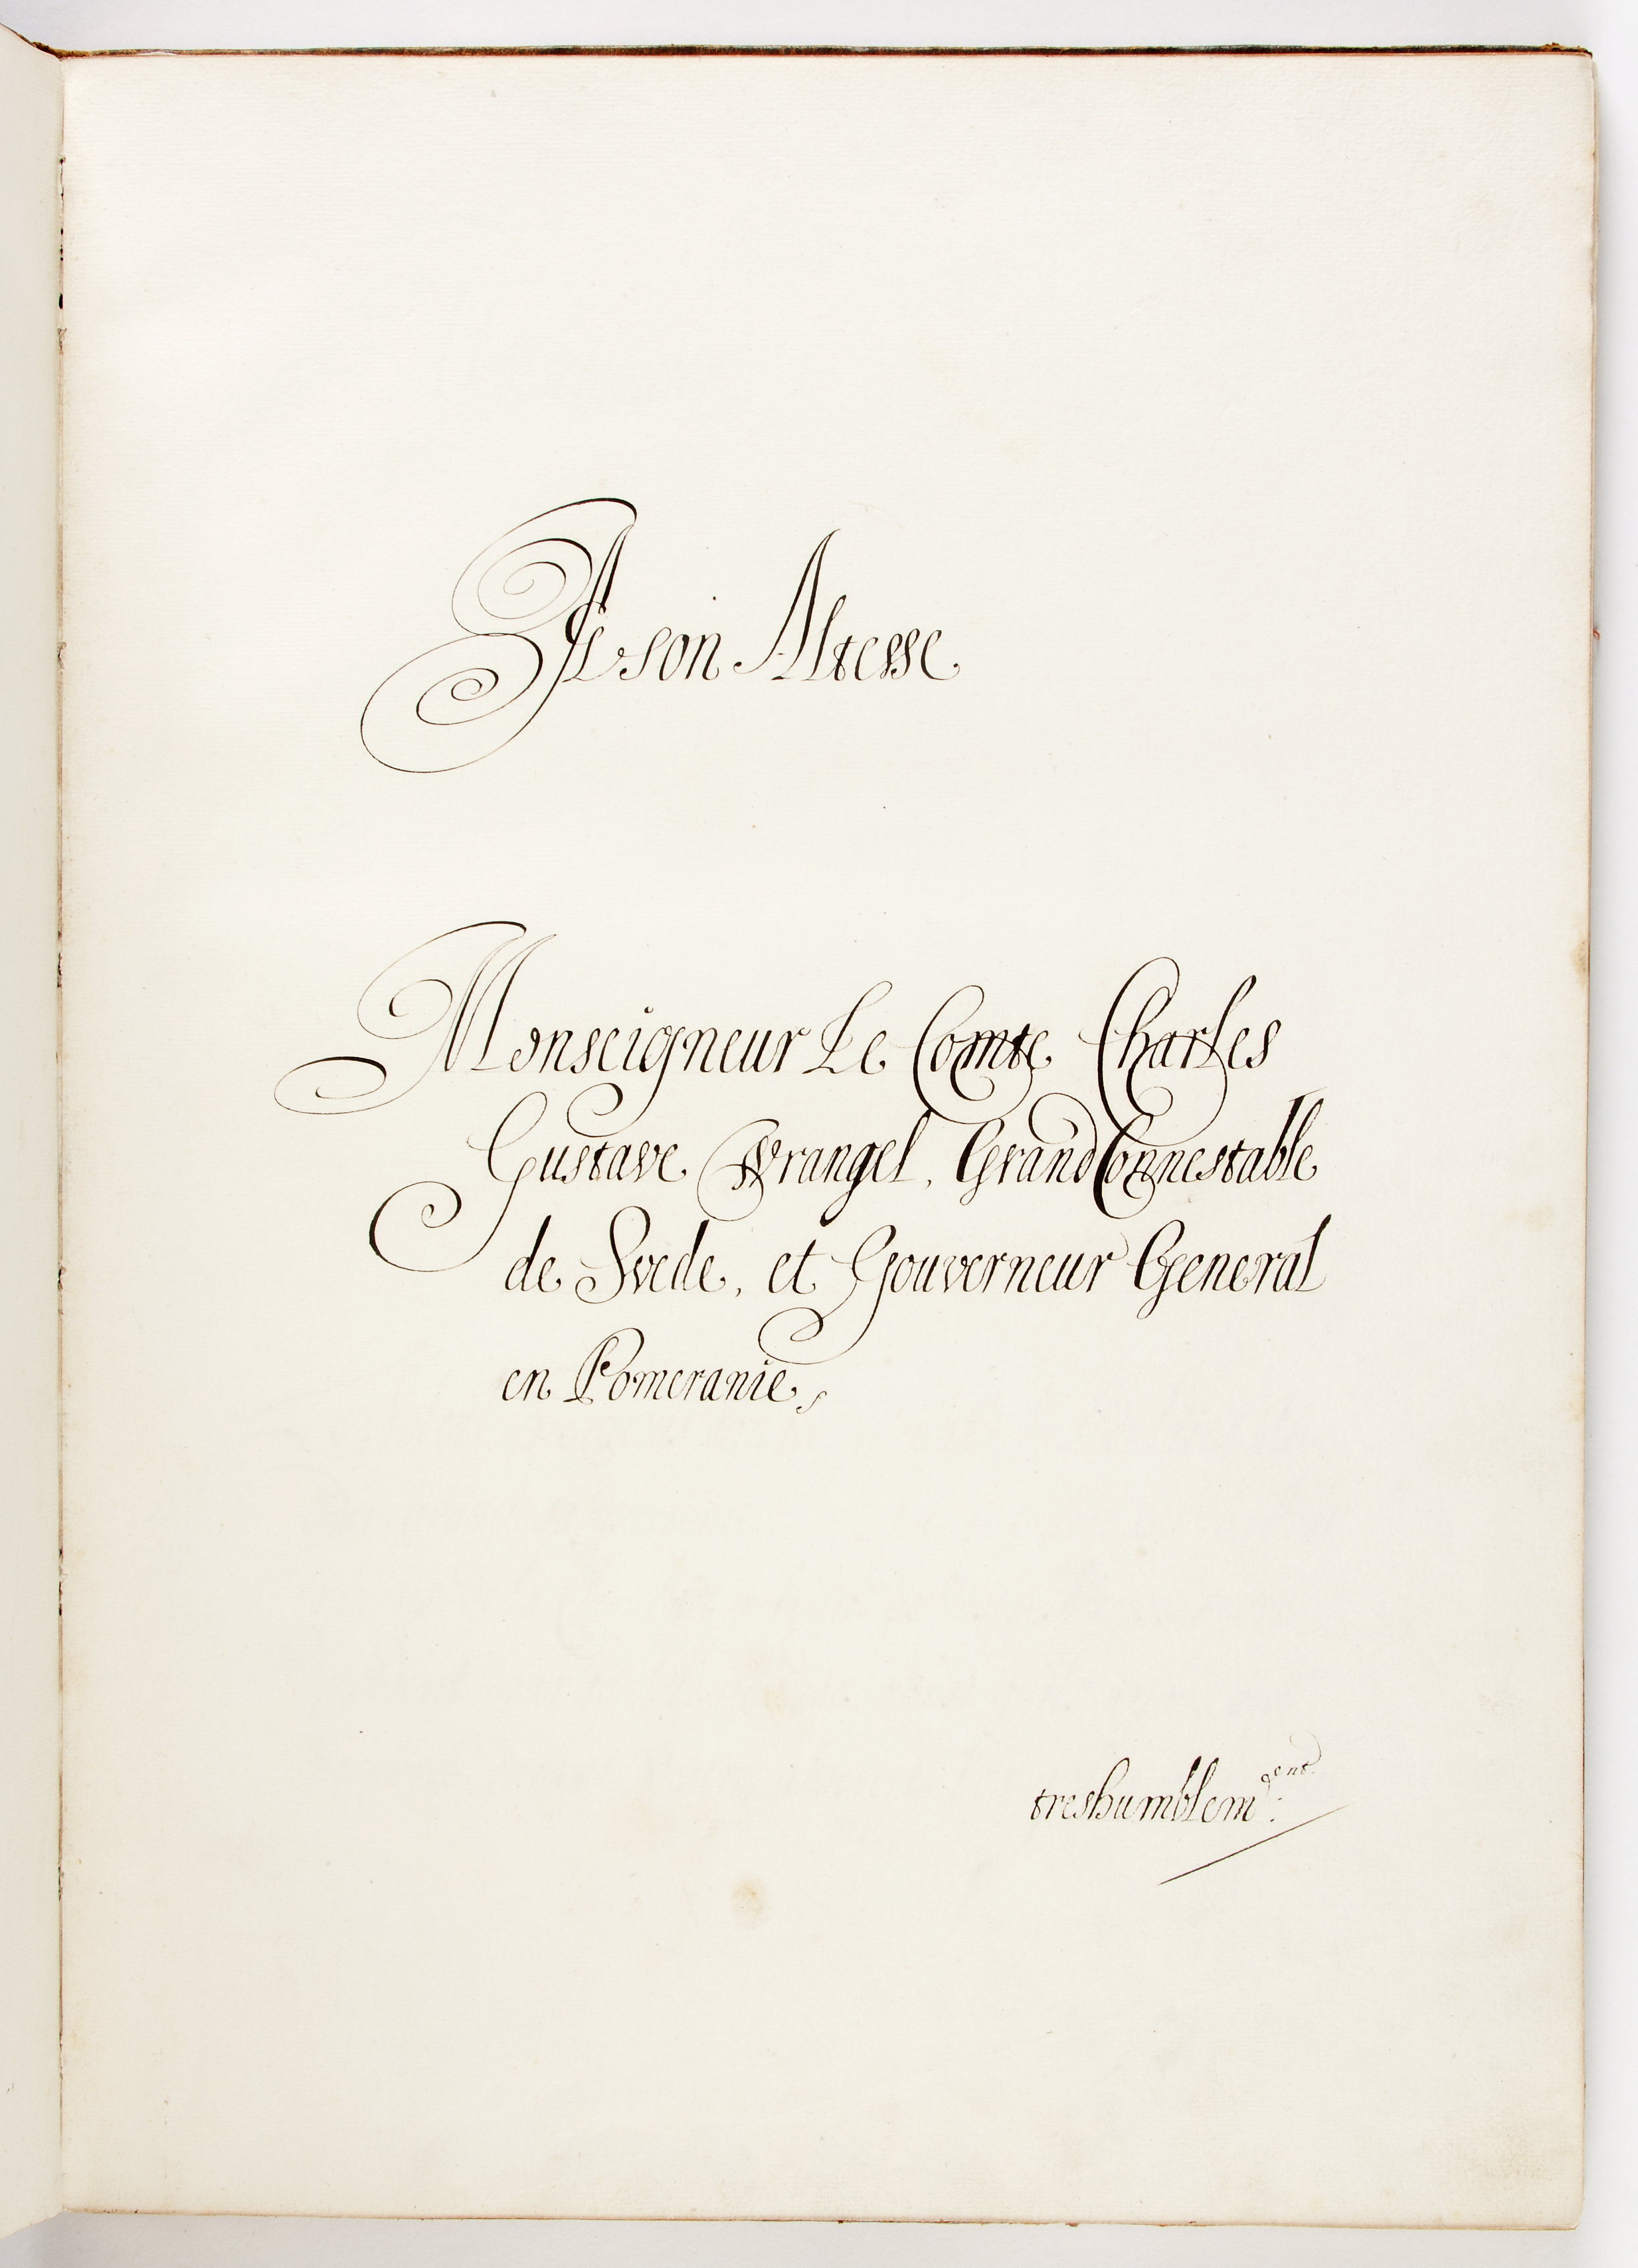 A son Altesse
Monseigneur Le Comte Charles
Gustave Wrangel, Grand Connestable
de Svede, et Gouverneur General
en Pomeranie,
treshumblem.ent: